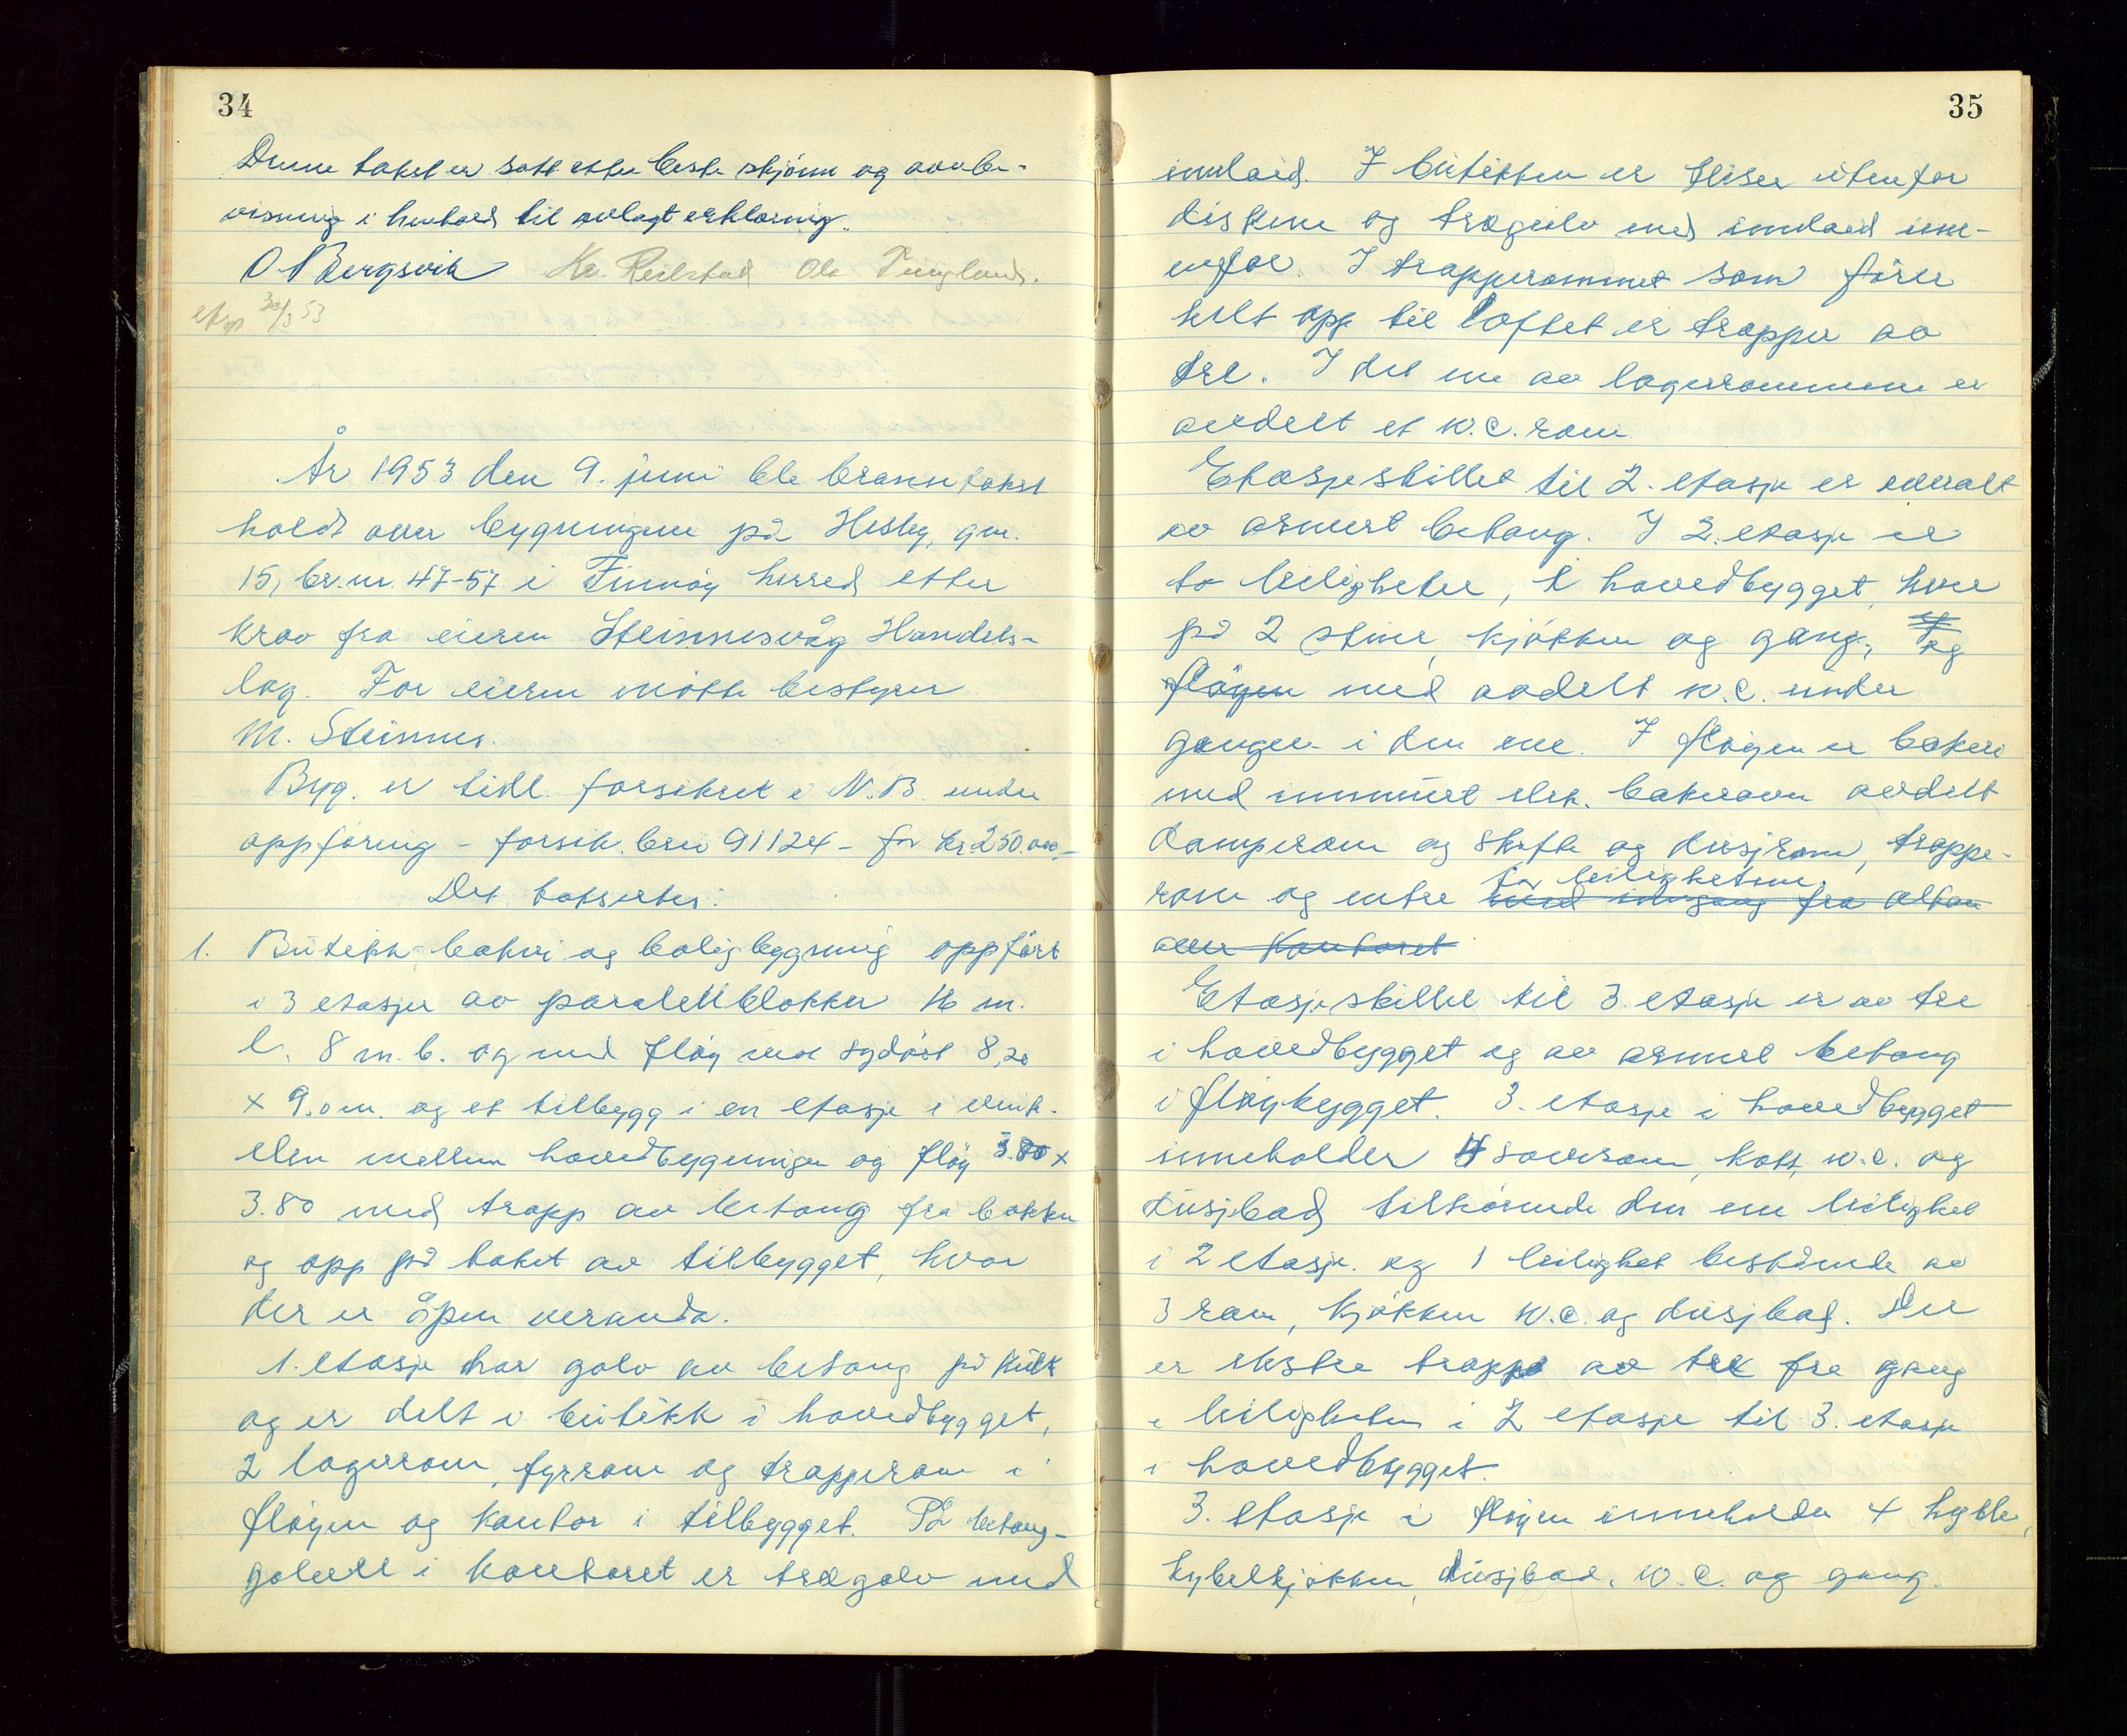 34
Denne takst er satt etter beste skjönn og overbe-
visning i henhold til avlagt erklæring.
O Bergsvik Kr. Reilstad Ola Tungland.
30/3 53
År 1953 den 9. juni ble branntakst
holdt over bygningene på Hesby, gnr.
15, br.nr. 47-57 i Finnöy herred etter
krav fra eieren Steinnesvåg Handels-
lag. For eieren mötte bestyrer
M. Steinnes.
Byg. er tidl. forsikret i N.B. under
oppföring - forsik.brev 91124 - for kr. 250.000,-
Det takseres:
1. Butikk- bakeri og boligbyggning oppfört
i 3 etasjer av paralellblokker 16 m.
l. 8 m. b. og med flöy mot sydöst 8,20
x 9.0 m. og et tilbygg i en etasje i vink-
elen mellem hovedbygningen og flöy 3.80 x
3.80 med trapp av betong fra bakken
og opp på taket av tilbygget, hvor
der er åpen veranda.
1. etasje har golv av betong på kult
og er delt i butikk i hovedbygget,
2 lagerrom, fyrrom og trapperom i
flöyen og kontor i tilbygget. På betong-
golvet i kontoret er tregolv med
35
innlaid. I butikken er fliser utenfor
diskene og tregulv med innlaid inn-
enfor. I trapperommet som förer
helt opp til loftet er trapper av
tre. I det ene av lagerrommene er
avdelt et w.c. rom
Etasjeskillet til 2. etasje er overalt
av armert betong. I 2. etasje er
to leiligheter, i hovedbygget, hver
på 2 stuer, kjökken og gang, og
flöyen med avdelt w.c. under
gangen i den ene. I flöyen er bakeri
med innmurt elek. bakerovn avdelt
damperom og skifte og dusjrom, trappe-
for leilighetene.
rom og entre med inngang fra altan
over kontoret
Etasjeskillet til 3. etasje er av tre
i hovedbygget og av armert betong
i flöybygget. 3. etasje i hovedbygget
inneholder 4 soverom, kott, w.c. og
dusjbad tilhörende den ene leilighet
i 2 etasje. og 1 leilighet bestående av
3 rom, kjökken w.c. og dusjbad. Der
er ekstra trapp av tre fra gang
i leiligheten i 2 etasje til 3. etasje
i hovedbygget.
3. etasje i flöyen inneholder 4 hybler,
hybelkjökken, dusjbad, w.c. og gang.